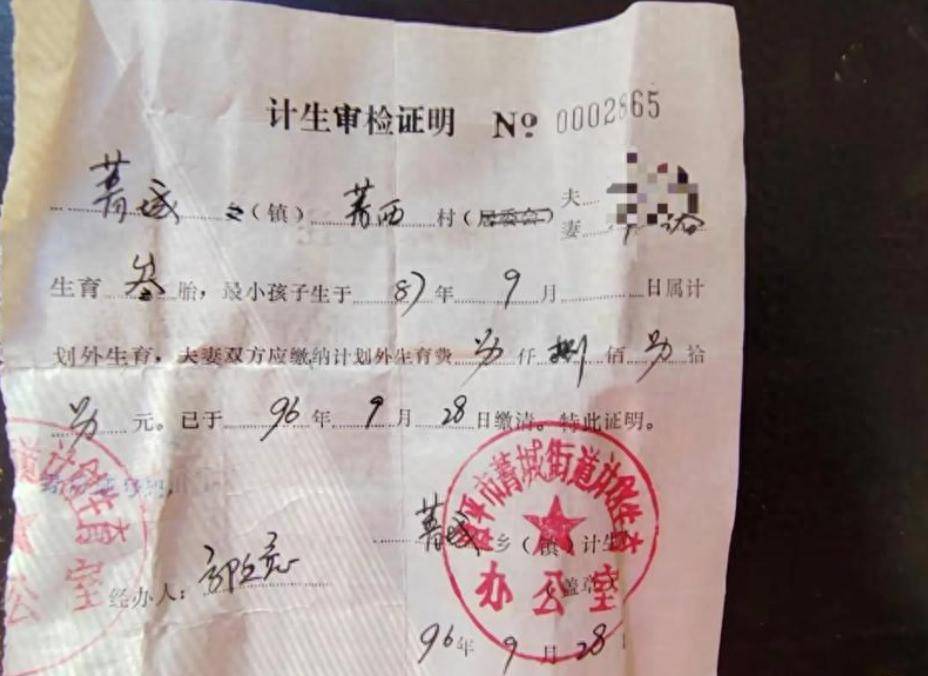 计生审检证明 No 0002865
菁城 乡(镇) 菁西 村(居委会) 夫
妻
生育 叁 胎,最小孩子生于 87 年 9 月 日属计
划外生育,夫妻双方应缴纳计划外生育费 仟 捌 佰 拾
元。已于 96 年 9 月 28 日缴清。特此证明。
菁城 乡(镇)计生
经办人:
(盖章)
96 年 9 月 28
平市菁城街道计划生育
办公室
道计划生育
公室